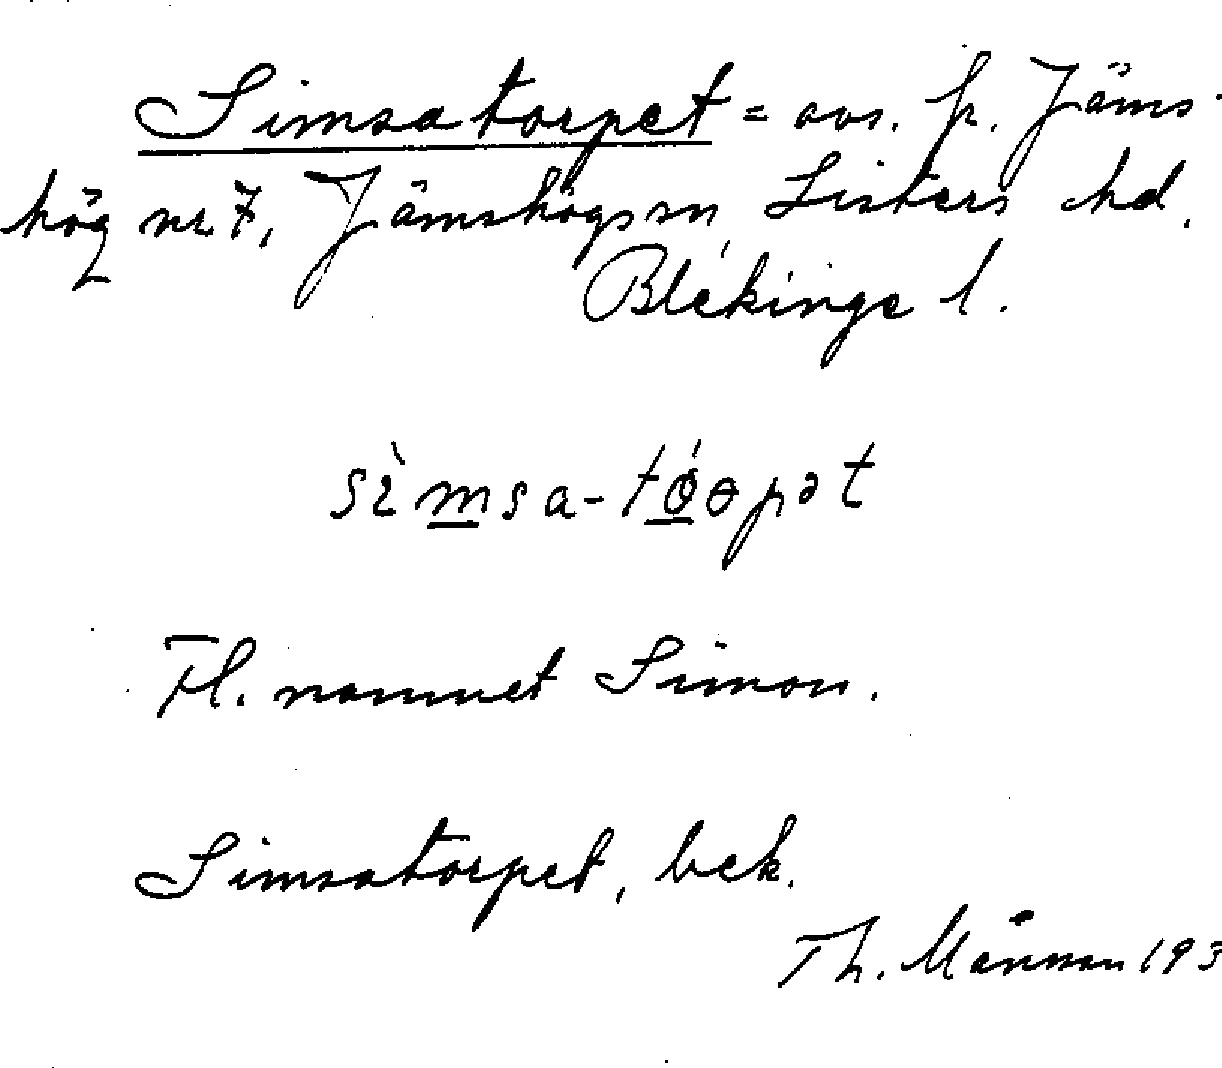 Simsatorpet = avs. p. Jäms-
hög nr 7, Jämshögs sn, Listers hd.
Blekinge l.
sìmsa-tóopət
Fl. namnet Simon.
Simsatorpet, bek.
Th. Månsson 193